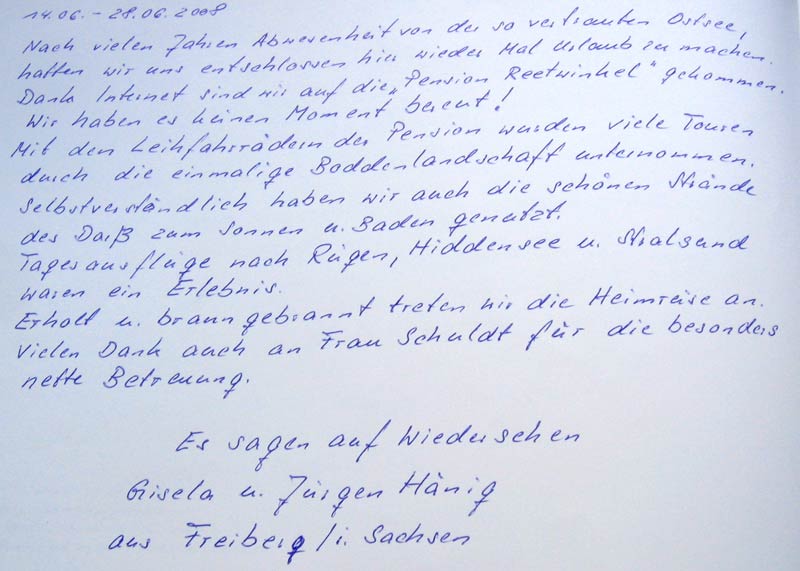 14.06. - 28.06.2008
Nach vielen Jahren Abwesenheit von der so vertrauten Ostsee,
hatten wir uns entschlossen hier wieder Mal Urlaub zu machen.
Dank Internet sind wir auf die „Pension Reetwinkel" gekommen.
Wir haben es keinen Moment bereut!
Mit den Leihfahrrädern der Pension wurden viele Touren
durch die einmalige Boddenlandschaft unternommen.
Selbstverständlich haben wir auch die schönen Strände
des Darß zum Sonnen u. Baden genutzt.
Tagesausflüge nach Rügen, Hiddensee u. Stralsund
waren ein Erlebnis.
Erholt u. braun gebrannt treten wir die Heimreise an.
Vielen Dank auch an Frau Schuldt für die besonders
nette Betreuung.
Es sagen auf Wiedersehen
Gisela u. Jürgen Hänig
aus Freiberg / i. Sachsen